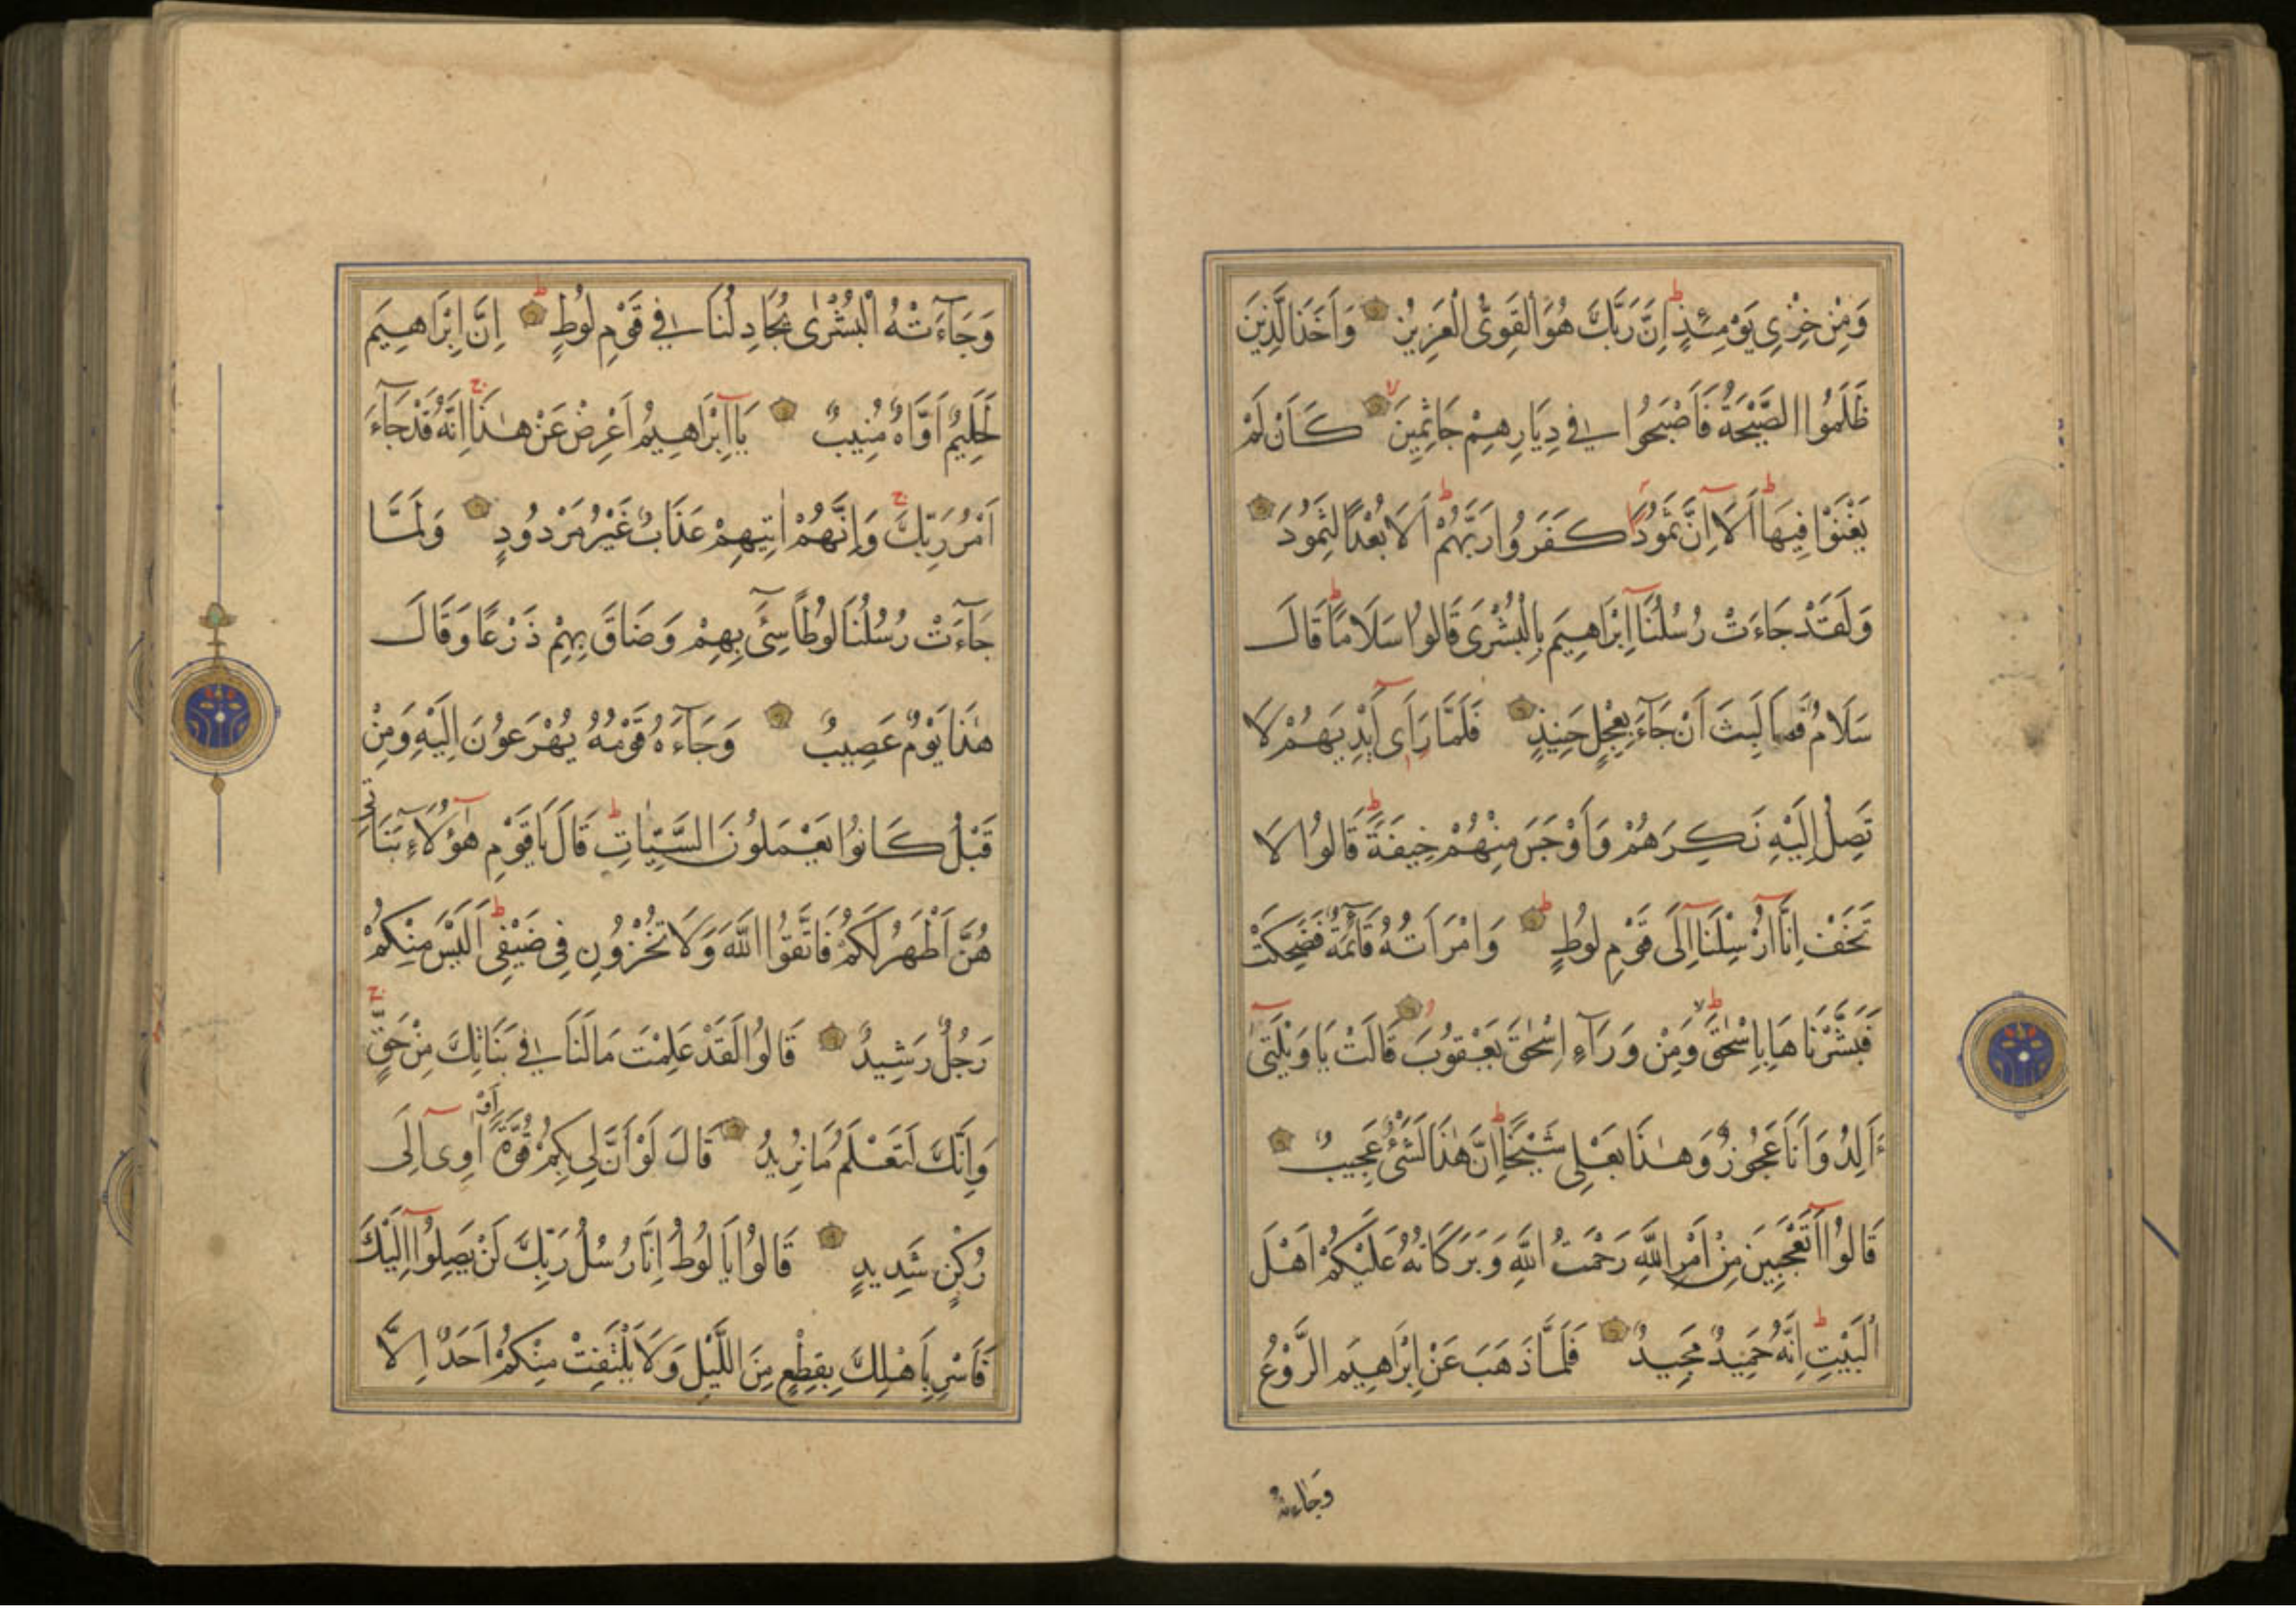 وَمِنْ خِزْيِ يَوْمِئِذٍ اِنَّ رَبَّكَ هُوَ الْقَوِىُّ الْعَزِيزُ وَاَخَذَ الَّذِينَ
ظَلَمُوا الصَّيْحَةُ فَاَصْبَحُوا فِي دِيَارِهِمْ جَاثِمِينَ كَاَنْ لَمْ
يَغْنَوْا فِيهَا اَلَا اِنَّ ثَمُودَا كَفَرُوا رَبَّهُمْ اَلَا بُعْدًا لِثَمُودَ
وَلَقَدْ جَاءَتْ رُسُلُنَا اِبْرَاهِيمَ بِالْبُشْرَى قَالُوا سَلَامًا قَالَ
سَلَامٌ فَمَا لَبِثَ اَنْ جَآءَ بِعِجْلٍ حَنِيذٍ فَلَمَّا رَاَى اَيْدِيَهُمْ لَا
تَصِلُ اِلَيْهِ نَكِرَهُمْ وَاَوْجَسَ مِنْهُمْ خِيفَةً قَالُوا لَا
تَخَفْ اِنَّا اُرْسِلْنَا اِلَى قَوْمِ لُوطٍ وَامْرَاَتُهُ قَائِمَةٌ فَضَحِكَتْ
فَبَشَّرْنَاهَا بِاِسْحٰقَ وَمِنْ وَرَآءِ اِسْحٰقَ يَعْقُوبَ قَالَتْ يَا وَيْلَتَى
ءَاَلِدُ وَاَنَا عَجُوزٌ وَهٰذَا بَعْلِي شَيْخًا اِنَّ هٰذَا لَشَيْءٌ عَجِيبٌ
قَالُوا اَتَعْجَبِينَ مِنْ اَمْرِ اللَّهِ رَحْمَتُ اللَّهِ وَبَرَكَاتُهُ عَلَيْكُمْ اَهْلَ
الْبَيْتِ اِنَّهُ حَمِيدٌ مَجِيدٌ فَلَمَّا ذَهَبَ عَنْ اِبْرَاهِيمَ الرَّوْعُ
وَجَاءَتْهُ
وَجَآءَتْهُ الْبُشْرٰى يُجَادِلُنَا فِي قَوْمِ لُوطٍ اِنَّ اِبْرَاهِيمَ
لَحَلِيمٌ اَوَّاهٌ مُنِيبٌ يَا اِبْرَاهِيمُ اَعْرِضْ عَنْ هٰذَا اِنَّهُ قَدْ جَآءَ
اَمْرُ رَبِّكَ وَاِنَّهُمْ اٰتِيهِمْ عَذَابٌ غَيْرُ مَرْدُودٍ وَلَمَّا
جَآءَتْ رُسُلُنَا لُوطًا سِىٓءَ بِهِمْ وَضَاقَ بِهِمْ ذَرْعًا وَقَالَ
هٰذَا يَوْمٌ عَصِيبٌ وَجَآءَهُ قَوْمُهُ يُهْرَعُونَ اِلَيْهِ وَمِنْ
قَبْلُ كَانُوا يَعْمَلُونَ السَّيِّاٰتِ قَالَ يَا قَوْمِ هٰؤُلَآءِ بَنَاتِي
هُنَّ اَطْهَرُ لَكُمْ فَاتَّقُوا اللَّهَ وَلَا تُخْزُونِ فِي ضَيْفِي اَلَيْسَ مِنْكُمْ
رَجُلٌ رَشِيدٌ قَالُوا لَقَدْ عَلِمْتَ مَا لَنَا فِي بَنَاتِكَ مِنْ حَقٍّ
وَاِنَّكَ لَتَعْلَمُ مَا نُرِيدُ قَالَ لَوْ اَنَّ لِي بِكُمْ قُوَّةً اَوْ اٰوِى اِلَى
رُكْنٍ شَدِيدٍ قَالُوا يَا لُوطُ اِنَّا رُسُلُ رَبِّكَ لَنْ يَصِلُوا اِلَيْكَ
فَاَسْرِ بِاَهْلِكَ بِقِطْعٍ مِنَ اللَّيْلِ وَلَا يَلْتَفِتْ مِنْكُمْ اَحَدٌ اِلَّا